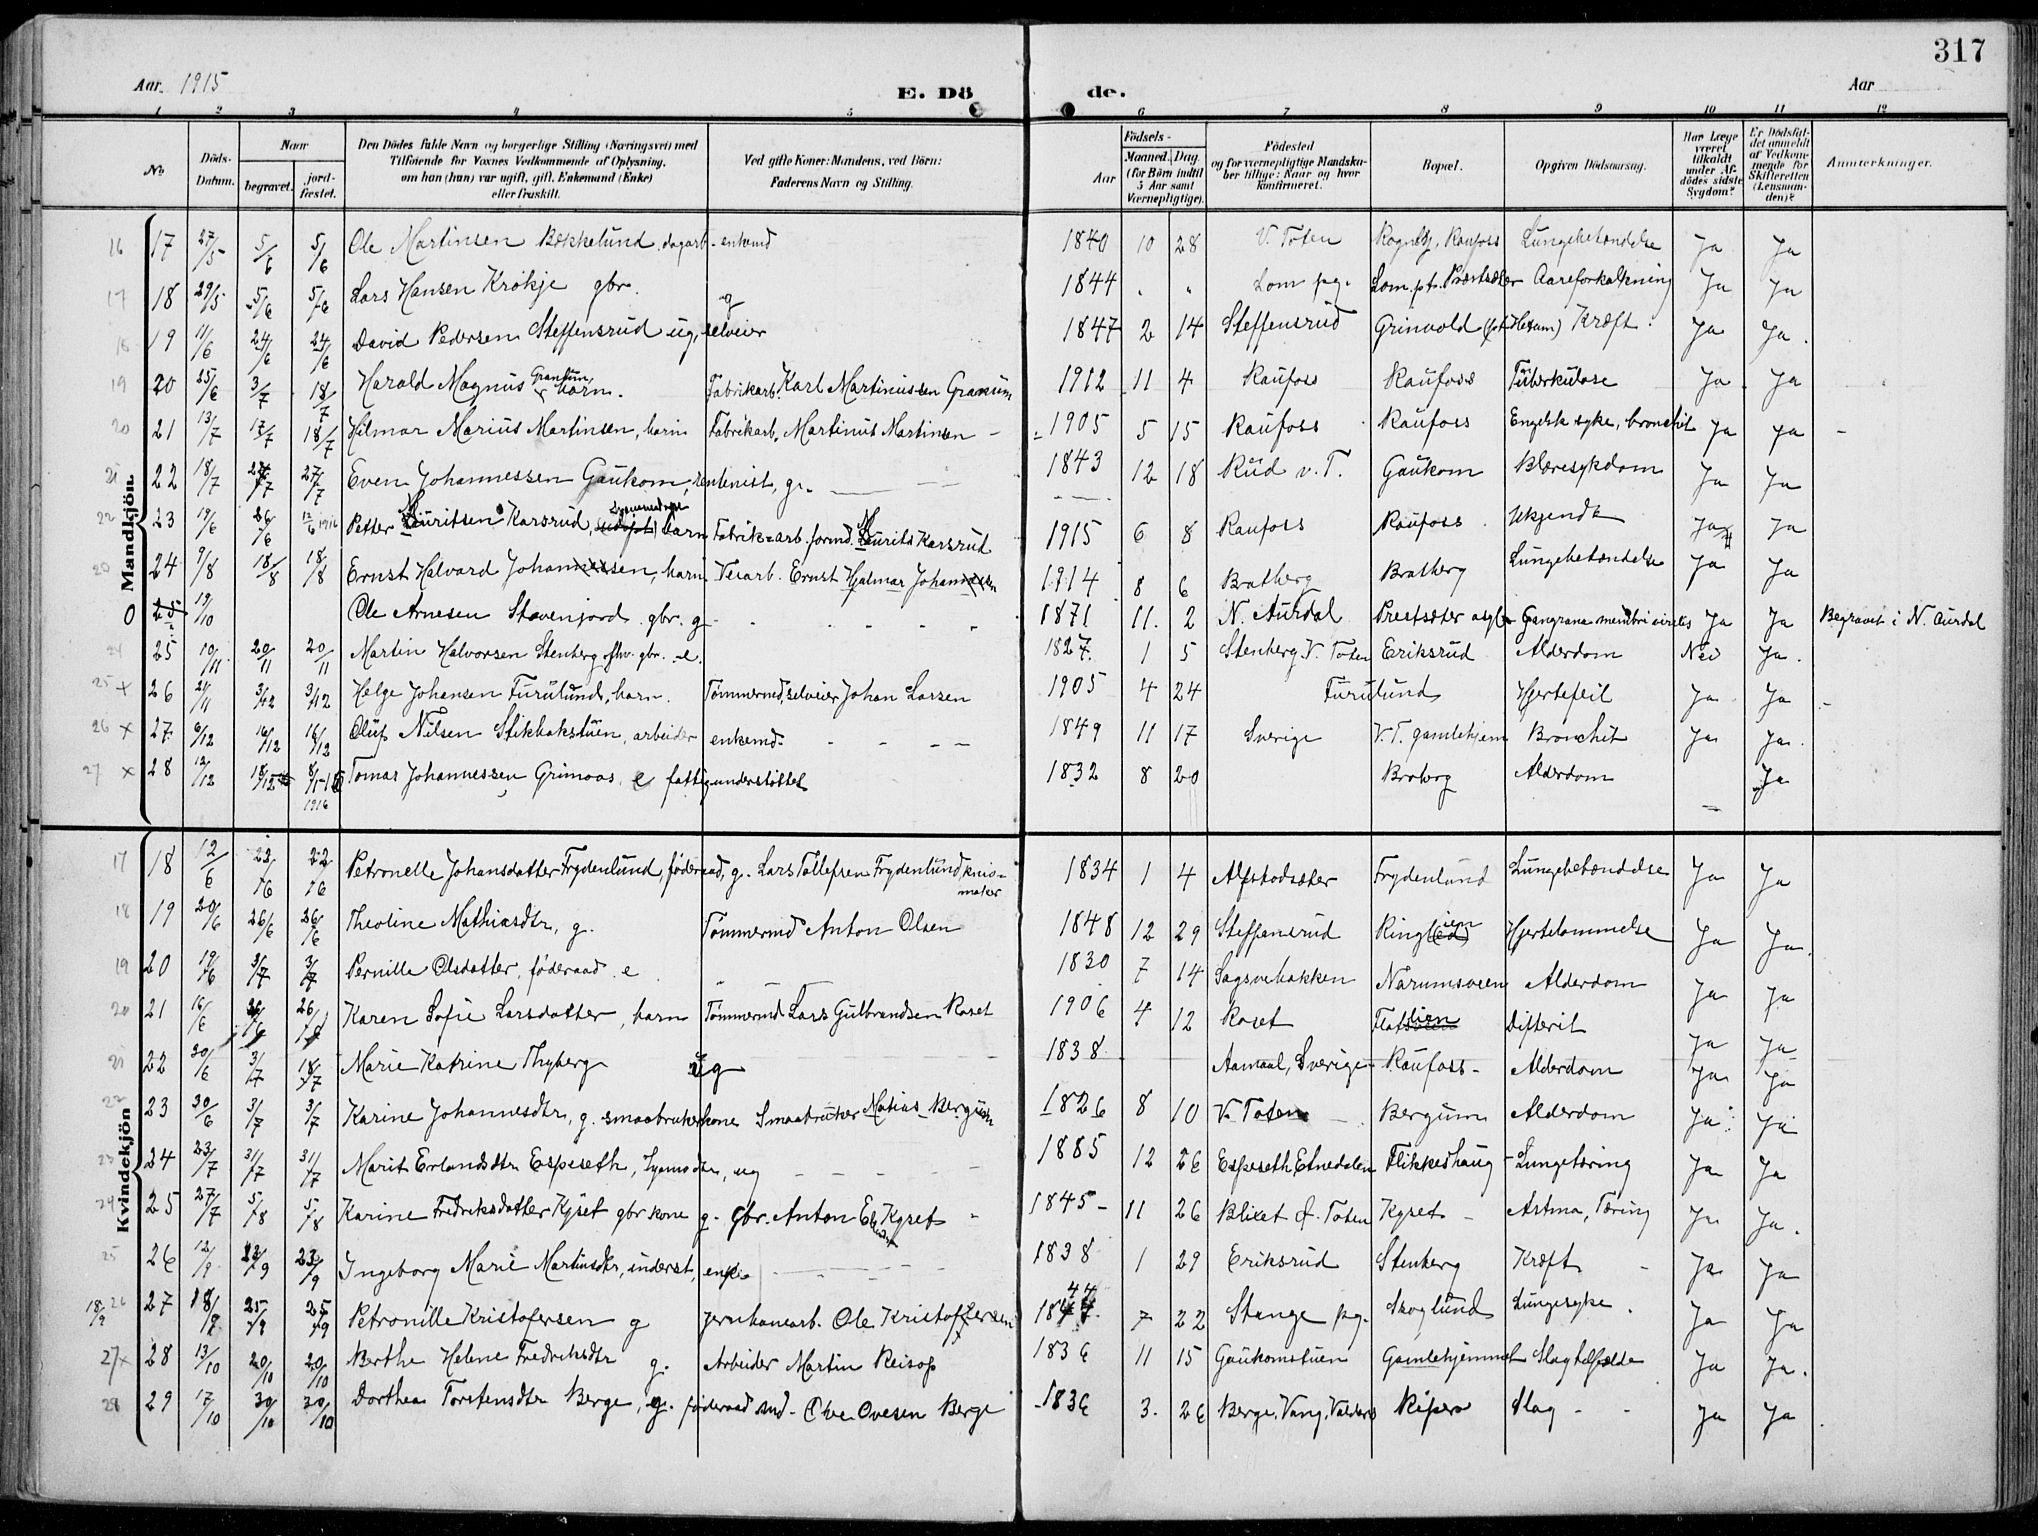 317
Aar 1915 E. Döde. Aar
1 2 3 4 5 6 7 8 9 10 11 12
No. Döds-Datum. Naar begravet. jordfæstet. Den Dödes fulde Navn og borgerlige Stilling (Næringsvei) med Tilføiende for Voxnes Vedkommende af Oplysning, om han (hun) var ugift, gift, Enkemand (Enke) eller fraskilt. Ved gifte Koner: Mandens, ved Börn: Faderens Navn og Stilling. Födsels- Aar Maaned. Dag. (for Börn indtil 5 Aar samt Værnepligtige). Födested og for værnepligtige Mandskaber tillige: Naar og hvor konfirmeret. Bopæl. Opgiven Dödsaarsag. Har Læge været tilkaldt under Afdödes sidste Sygdom? Er Dödsfaldet anmeldt af Vedkommende for Skifteretten (Lensmanden)? Anmerkninger.
Mandkjön.
16 17 27/5 5/6 5/6 Ole Martinsen Bækkelund, dagarb - enkemd 1840 10 28 V. Toten Raufoss Lungebetændelse Ja Ja
17 18 29/5 5/6 5/6 Lars Hansen Krökje gbr. g 1844 " " Lom pg. Lom. Aareforkalkning Ja Ja
18 19 11/6 24/6 24/6 David Pedersen Steffensrud ug, selveier 1847 2 14 Steffensrud Grinvold Kræft Ja Ja
19 20 25/6 3/7 18/7 Harald Magnus Granum barn. Fabrikarb. Karl Martinussen Granum 1912 11 4 Raufoss Raufoss Tuberkulose Ja Ja
20 21 13/7 17/7 18/7 Hilmar Marius Martinsen, barn Fabrikarb. Martinus Martinsen 1905 5 15 Raufoss Raufoss Engelsk syke, bronchit Ja Ja
21 22 18/7 27/7 27/7 Even Johannessen Gaukom, rentenist, g. 1843 12 18 Rud v. T. Gaukom Blæresykdom Ja Ja
22 23 19/6 26/6 12/6 1916 Petter Lauritsen Karsrud, barn Fabrik=arb. formd. Laurits Karsrud 1915 6 8 Raufoss Raufoss Ukjendt Ja Ja
20 24 9/8 18/8 18/8 Ernst Halvard Johannessen, barn Veiarb. Ernst Hjalmar Johannessen 1914 8 6 Bratberg Bratberg Lungebetændelse Ja Ja
0 25 19/10 Ole Arnesen Stavenjord gbr. g 1871 11. 2 N. Aurdal Prestsæter asyl Gangræna membri virilis Ja Ja Begravet i N. Aurdal
24 25 10/11 20/11 20/11 Martin Halvorsen Stenberg gbr. e. 1827 1 5 Stenberg V. Toten Eriksrud Alderdom Nei Ja.
25 x 26 21/11 3/12 3/12 Helge Johansen Furulund, barn. Tømmermd, selveier Johan Larsen 1905 4 24 Furulund Hjertefeil Ja Ja
26 x 27 6/12 16/12 16/12 Oluf Nilsen Stikbakstuen, arbeider enkemd. 1849 11 17 Sverige V.T. gamlehjem Bronchit Ja Ja.
27 x 28 12/12 18/12 8/1-16 1916 Tomas Johannessen Grimoas e fattigunderstöttet 1832 8 20 Broberg Alderdom — Ja
Kvindekjön
17 18 12/6 23/6 22/6 Petronelle Johansdatter Frydenlund, föderaad, g. Lars Tollefsen Frydenlund knivmaker 1834 1 4 Alfstadsæter Frydenlund Lungebetændelse Ja Ja
18 19 20/6 26/6 26/6 Theoline Mathiasdtr, g. Tømmermd Anton Olsen 1848 12 29 Steffensrud Ringlien Hjertelammelse Ja Ja.
19 20 19/6 3/7 3/7 Pernille Olsdatter, føderaad e 1830 7 14 Sagsvebakken Narumsveen Alderdom Ja Ja
20 21 16/6 26/6 26/6 Karen Sofie Larsdatter, barn Tømmermd Lars Gulbrandsen Roset 1906 4 12 Roset Flatlien Difterit Ja Ja
21 22 30/6 3/7 18/7 Marie Katrine Thyberg ug 1838 Aamaal, Sverige Raufoss Alderdom Ja Ja
22 23 30/6 3/7 3/7 Karine Johannesdtr, g. smaabrukerkone Smaabruker Matias Bergum 1826 8 10 V. Toten Bergum Alderdom Ja Ja
23 24 23/7 31/7 31/7 Marit Erlandsdtr Espeseth, ug 1885 12 26 Espeseth Etnedalen Flikkeshaug Lungetæring Ja Ja
24 25 27/7 5/8 5/8 Karine Fredriksdatter Kyset gbr kone g. Gbr. Anton Kyset 1845 11 26 Blixet Ø. Toten Kyset Astma, Tæring Ja Ja.
25 26 12/9 22/9 23/9 Ingeborg Marie Martinsdtr, inderst, enke 1838 1 29 Eriksrud Stenberg Kræft Ja Ja
18/9 26 27 18/9 25/9 25/9 Petronille Kristofersen g Jernbanearb. Ole Kristoffersen 1844 7 22 Stange pg. Skoglund Lungesyke Ja Ja
27 x 28 13/10 20/10 20/10 Berthe Helene Fredriksdtr g. Arbeider Martin Reisop 1836 11 15 Gaukomstuen Gamlehjemmet Slagtilfælde Ja Ja.
28 29 17/10 30/10 30/10 Dorthea Torstensdtr Berge, g. føderaadsmd. Ovesen Berge 1836 3. 26 Berge, Vang, Valdres Slag Ja Ja